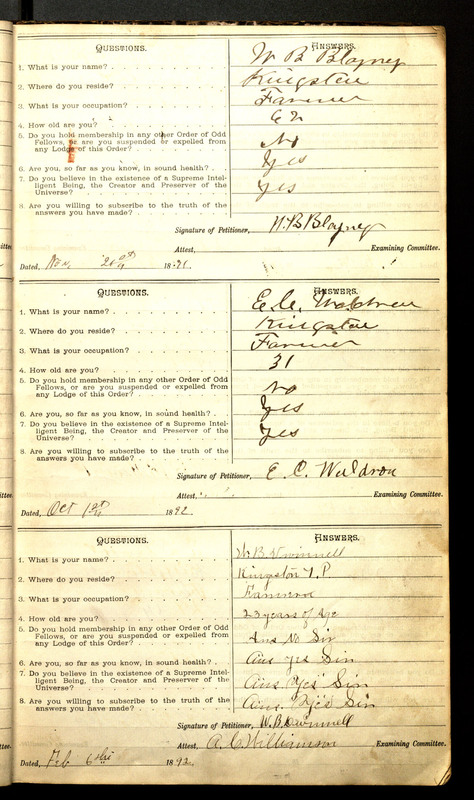 QUESTIONS. ANSWERS.
1. What is your name? W B Blayney
2. Where do you reside? Kingston
3. What is your occupation? Farmer
4. How old are you? 62
5. Do you hold membership in any other Order of Odd
Fellows, or are you suspended or expelled from
any Lodge of this Order? No
6. Are you, so far as you know, in sound health? Yes
7. Do you believe in the existence of a Supreme Intel-
ligent Being, the Creator and Preserver of the
Universe? Yes
8. Are you willing to subscribe to the truth of the
answers you have made?
Signature of Petitioner, W. B Blayney
Attest, Examining Committee.
Dated, Nov. 18 91.
QUESTIONS. ANSWERS.
1. What is your name? E. C. Waldron
2. Where do you reside? Kingston
3. What is your occupation? Farmer
4. How old are you? 31
5. Do you hold membership in any other Order of Odd
Fellows, or are you suspended or expelled from
any Lodge of this Order? No
6. Are you, so far as you know, in sound health? Yes
7. Do you believe in the existence of a Supreme Intel-
ligent Being, the Creator and Preserver of the
Universe? Yes
8. Are you willing to subscribe to the truth of the
answers you have made?
Signature of Petitioner, E. C. Waldron
Attest, Examining Committee.
Dated, Oct 1st 1892.
QUESTIONS. ANSWERS.
1. What is your name? W. B. Dwinnell
2. Where do you reside? Kingston
3. What is your occupation? Farmer
4. How old are you? 23 years of Age
5. Do you hold membership in any other Order of Odd
Fellows, or are you suspended or expelled from
any Lodge of this Order? Ans No Sir
6. Are you, so far as you know, in sound health? Ans Yes Sir
7. Do you believe in the existence of a Supreme Intel-
ligent Being, the Creator and Preserver of the
Universe? Ans. Yes Sir
8. Are you willing to subscribe to the truth of the
answers you have made? Ans. Yes Sir
Signature of Petitioner, W. B. Dwinnell
Attest, A. C. Williamson Examining Committee.
Dated, Feb 6th 1892.